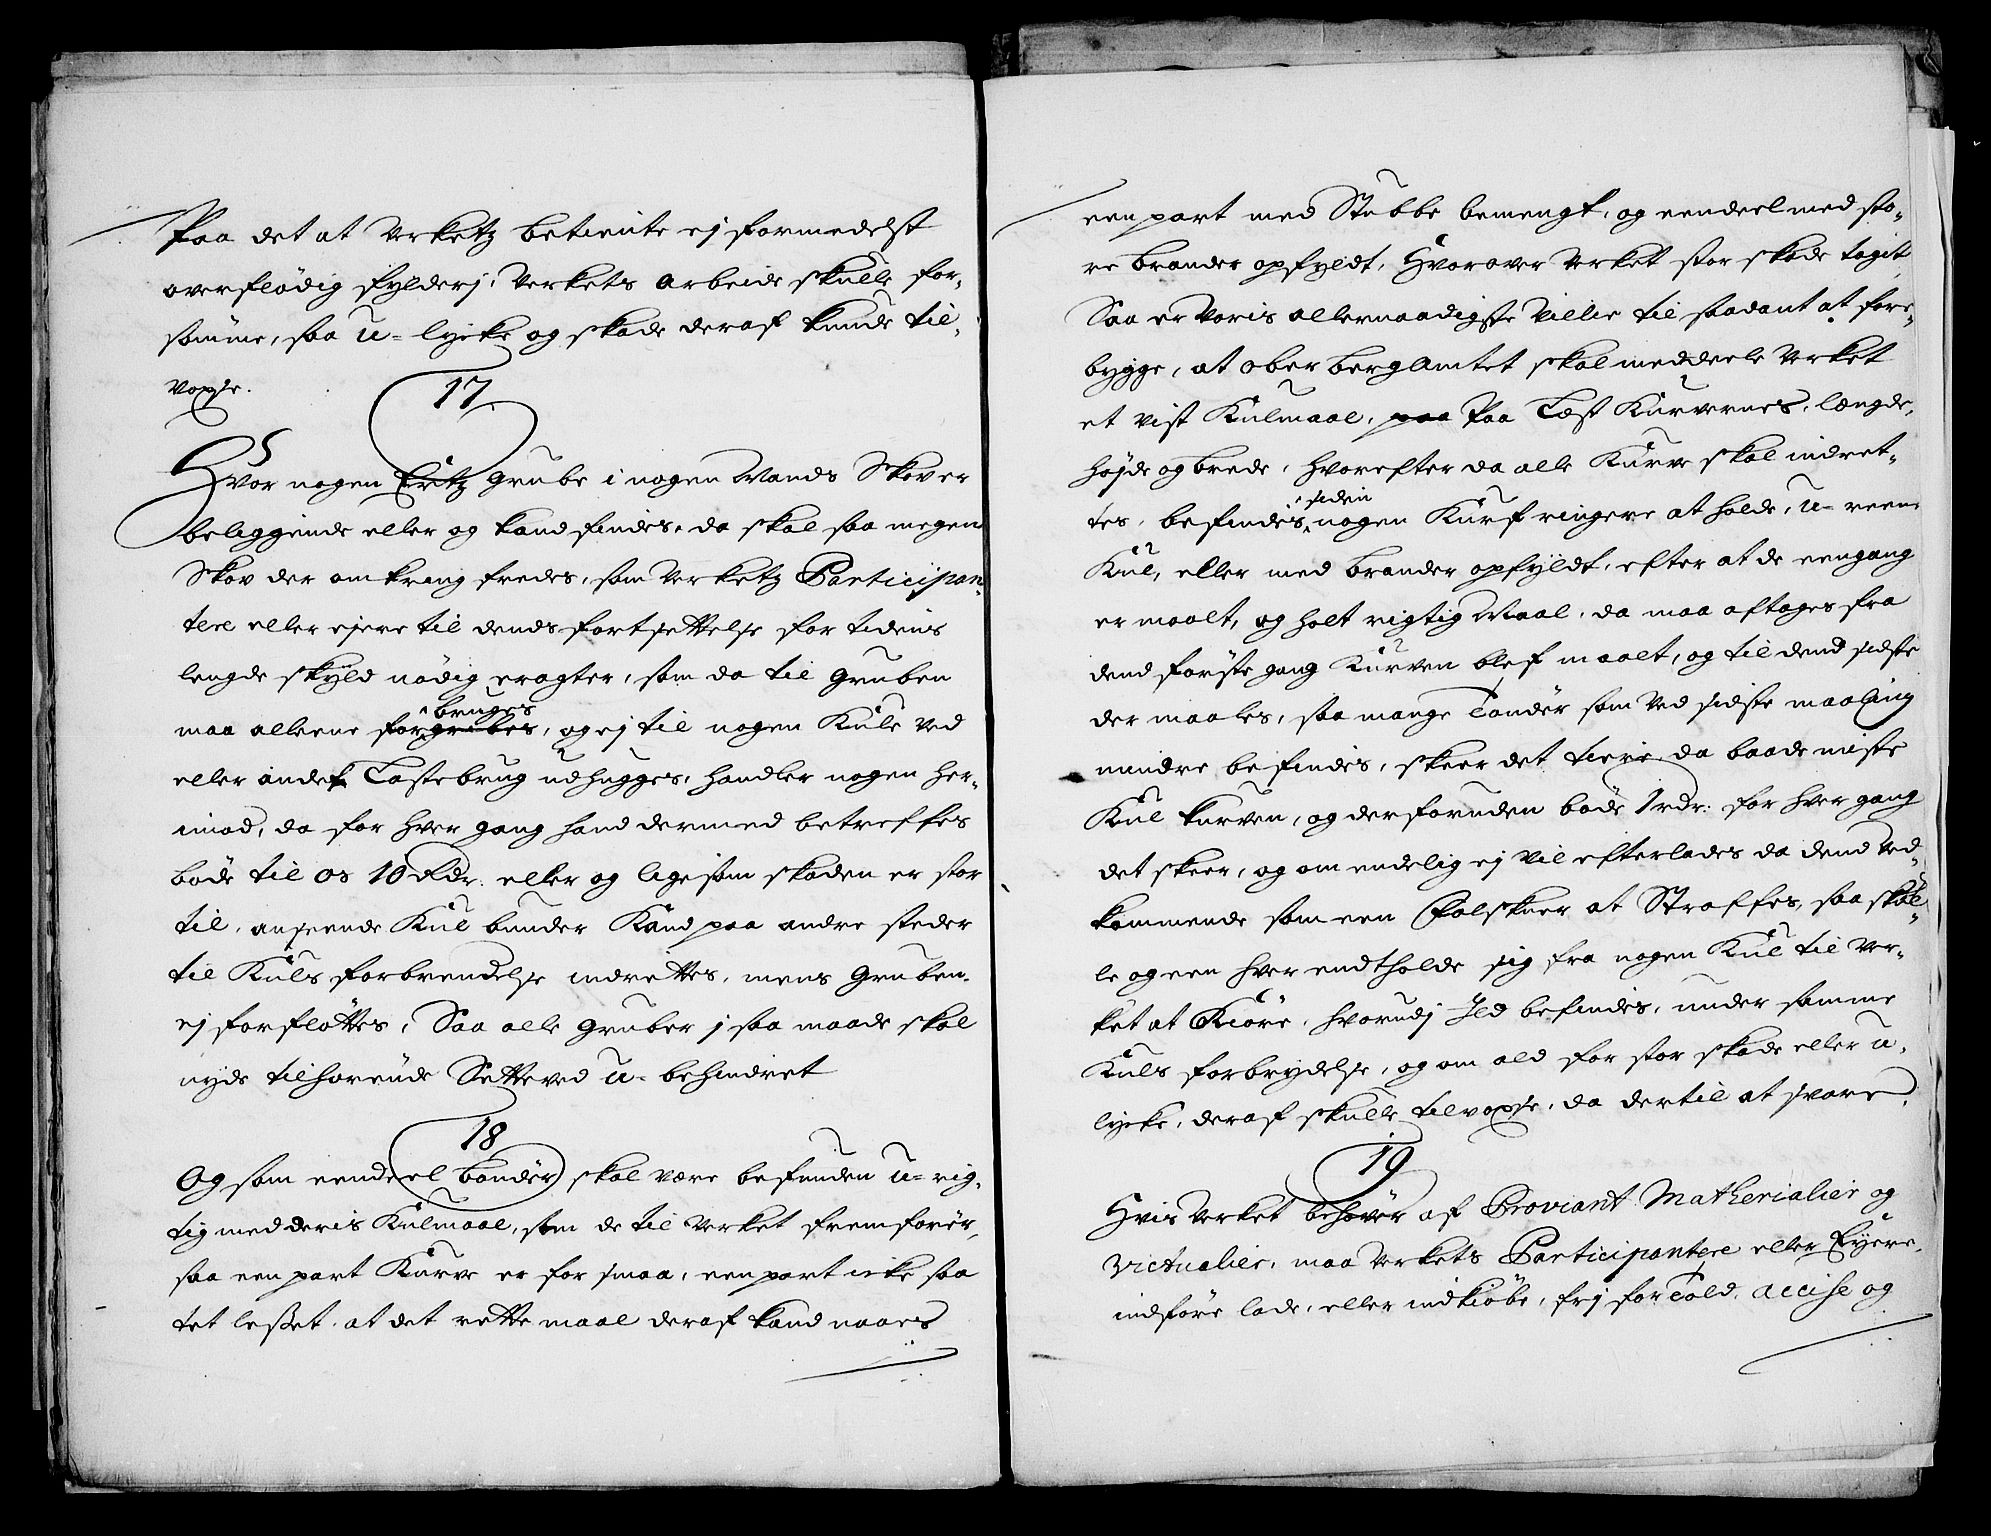 Paa det at Verketz betiente ej formedelst
overflødig fylderj, Verkets arbeide skulle for-
sømme, saa U-lycke og skade deraf kunde til-
voxse.
17
Hvor nogen Ertz grube i nogen Mands Skov er
beliggende eller og kand findes, da skal saa megen
Skov der omkring fredes, som Verketz Participan-
tere eller ejere til dends fortsettelse for tidens
lengde skyld nödig eragter, som da til gruben
maa alleene bruges, og ej til nogen Kule ved
eller andet Lastebrug udhugges, handler nogen her-
imod, da for hver gang hand dermed betreffes
bøde til os 10 Rdr. eller og ligesom skaden er stor
til, anseende Kul bunder Kand paa andre steder
til Kuls forbrendelse indrettes, mens gruben
ej forflöttes, Saa alle gruber j saa maade skal
nyde tilhørende Setteved U-behindret
18
Og som eendeel bønder skal være befunden U-rig-
tig med deris Kulmaal, som de til Verket fremfører,
saa een part Kurve er for smaa, een part icke saa
tet lesset, at det rette maal deraf kand naaes
een part med Stubbe bemengt, og eendeel med sto-
re brander opfyldt, Hvorover Verket stor skade tagit
Saa er Voris allernaadigste Villie til saadant at fore-
bygge, at ober bergAmtet skal meddeele Verket
et vist Kulmaal, paa Paa Læst Kurvernes, længde,
højde og brede, hvorefter da alle Kurve skal indret-
tes, befindes siden nogen Kurf ringere at holde, U-reene
Kul, eller med brander opfyldt, efter at de eengang
er maalt, og holt rigtig Maal, da maa aftages fra
dend förste gang Kurven blef maalt, og til dend sidste
der maales, saa mange Tønder som ved sidste maaling
mindre befindes, skeer det tiere da baade miste
Kul kurven, og derforuden bøde 1 rdr: for hver gang
det skeer, og om endelig ej vil efterlades da dend Ved-
kommende som een Falskner at Straffes, saa skul-
le og een hver endtholde sig fra nogen Kul til Ver-
ket at Kiöre, hvorudj Ild befindes, under samme
Kuls forbrydelse, og om ald for stor skade eller u-
lycke, deraf skulle tilvoxse, da dertil at svare.
19
Hvis Verket behøver af Proviant Matherialier og
Victualier, maa Verkets Participantere eller Eyere,
indføre lade, eller indkiöbe, frj for Told, accise og